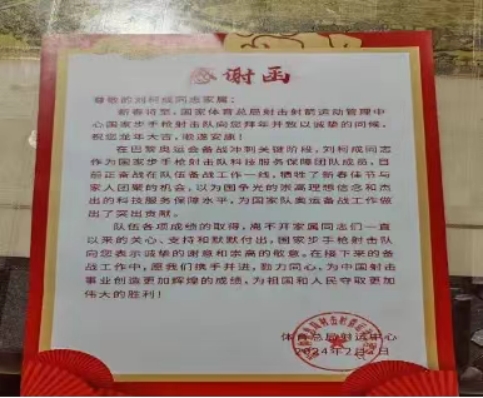 感谢函
尊敬的刘柯成同志家属：
新春将至，国家体育总局射击射箭运动管理中
心国家步手枪射击队向您拜年并致以诚挚的问候，
祝您龙年大吉，顺遂安康！
在巴黎奥运会备战冲刺关键阶段，刘柯成同志
作为国家步手枪射击队科技服务保障团队成员，目
前正奋战在队伍备战工作一线，牺牲了新春佳节与
家人团聚的机会，以为国争光的崇高理想信念和杰
出的科技服务保障水平，为国家队奥运备战工作做
出了突出贡献。
队伍各项成绩的取得，离不开家属同志们一直
以来的关心、支持和默默付出，国家步手枪射击队
向您表示诚挚的谢意和崇高的敬意。在接下来的备
战工作中，愿我们携手并进，勠力同心，为中国射击
事业创造更加辉煌的成绩，为祖国和人民夺取更加
伟大的胜利！
体育总局射运中心
2024年2月